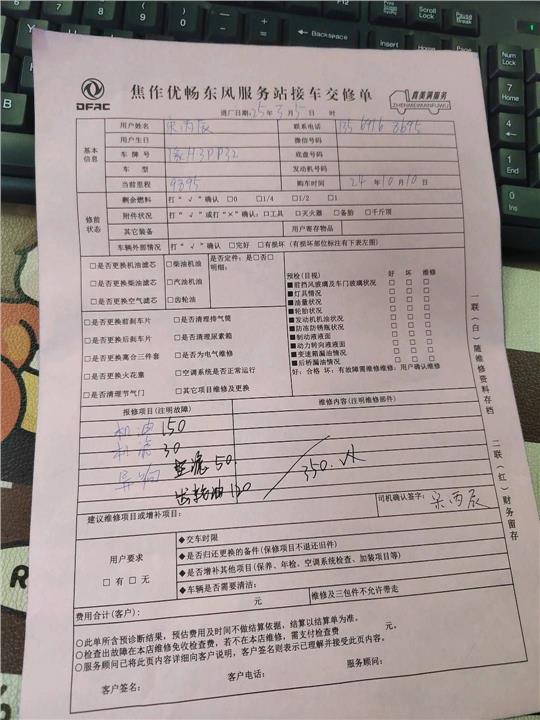 DFAC
焦作优畅东风服务站接车交修单
真美满服务
ZHENMEIMANFUWU
进厂日期:25年3月5日 时
基本信息
用户姓名 宋丙辰 联系电话
用户生日 微信号码
车牌号 豫H3PP32 底盘号码
车型 发动机号码
当前里程 9895 购车时间 24年10月10日
修前状态
剩余燃料 打“√”确认 □0 □1/4 □1/2 □1
附件状况 打“√”或打“×”确认:□工具 □灭火器 □备胎 □千斤顶
其它装备 用户寄存物品
车辆外部情况 打“√”确认 □完好 □有损坏(有损坏部位标注有下表左图)
□是否更换机油滤芯 □柴油机油 是否定件:是□否□
□是否更换柴油滤芯 □汽油机油 明细:
□是否更换空气滤芯 □齿轮油
□是否更换前刹车片 □是否清理排气筒
□是否更换后刹车片 □是否清理尿素箱
□是否更换离合三件套 □是否为电气维修
□是否更换火花塞 □空调系统是否正常运行
□是否清理节气门 □其它项目维修及更换
预检(目视) 好 坏 维修
■前挡风玻璃及车门玻璃状况 □ □ □
■灯具情况 □ □ □
■油量状况 □ □ □
■轮胎状况 □ □ □
■发动机机油状况 □ □ □
■防冻防锈瓶状况 □ □ □
■制动液液面 □ □ □
■动力转向液液面 □ □ □
■变速箱漏油情况 □ □ □
■后桥漏油情况 □ □ □
好:合格 坏:有故障需维修维修:用户确认维修
报修项目(注明故障) 维修内容(注明维修部件)
机油 150
机滤 30
异响 空滤 50.
齿轮油 120
350.
司机确认签字: 宋丙辰
建议维修项目或增补项目:
用户要求
□有 □无
◆交车时限
◆是否归还更换的备件(保修项目不退还旧件)
◆是否增补其他项目(保养、年检、空调系统检查、加装项目等)
◆车辆是否需要清洁:
维修及三包件不允许带走
费用合计(客户): 元
○此单所含预诊断结果,预估费用及时间不做结算依据,结算以结算单为准。
○检查出故障在本店维修免收检查费,若不在本店维修,需支付检查费 元。
○服务顾问已将此页内容详细向客户说明,客户签名则表示已理解并接受此页内容。
客户签名: 客户电话: 服务顾问:
一联(白)随维修资料存档
二联(红)财务留存
Backspace
Scroll Lock
Pause Break
Insert
Home
Num Lock
7 Home
4
1 End
0 Ins